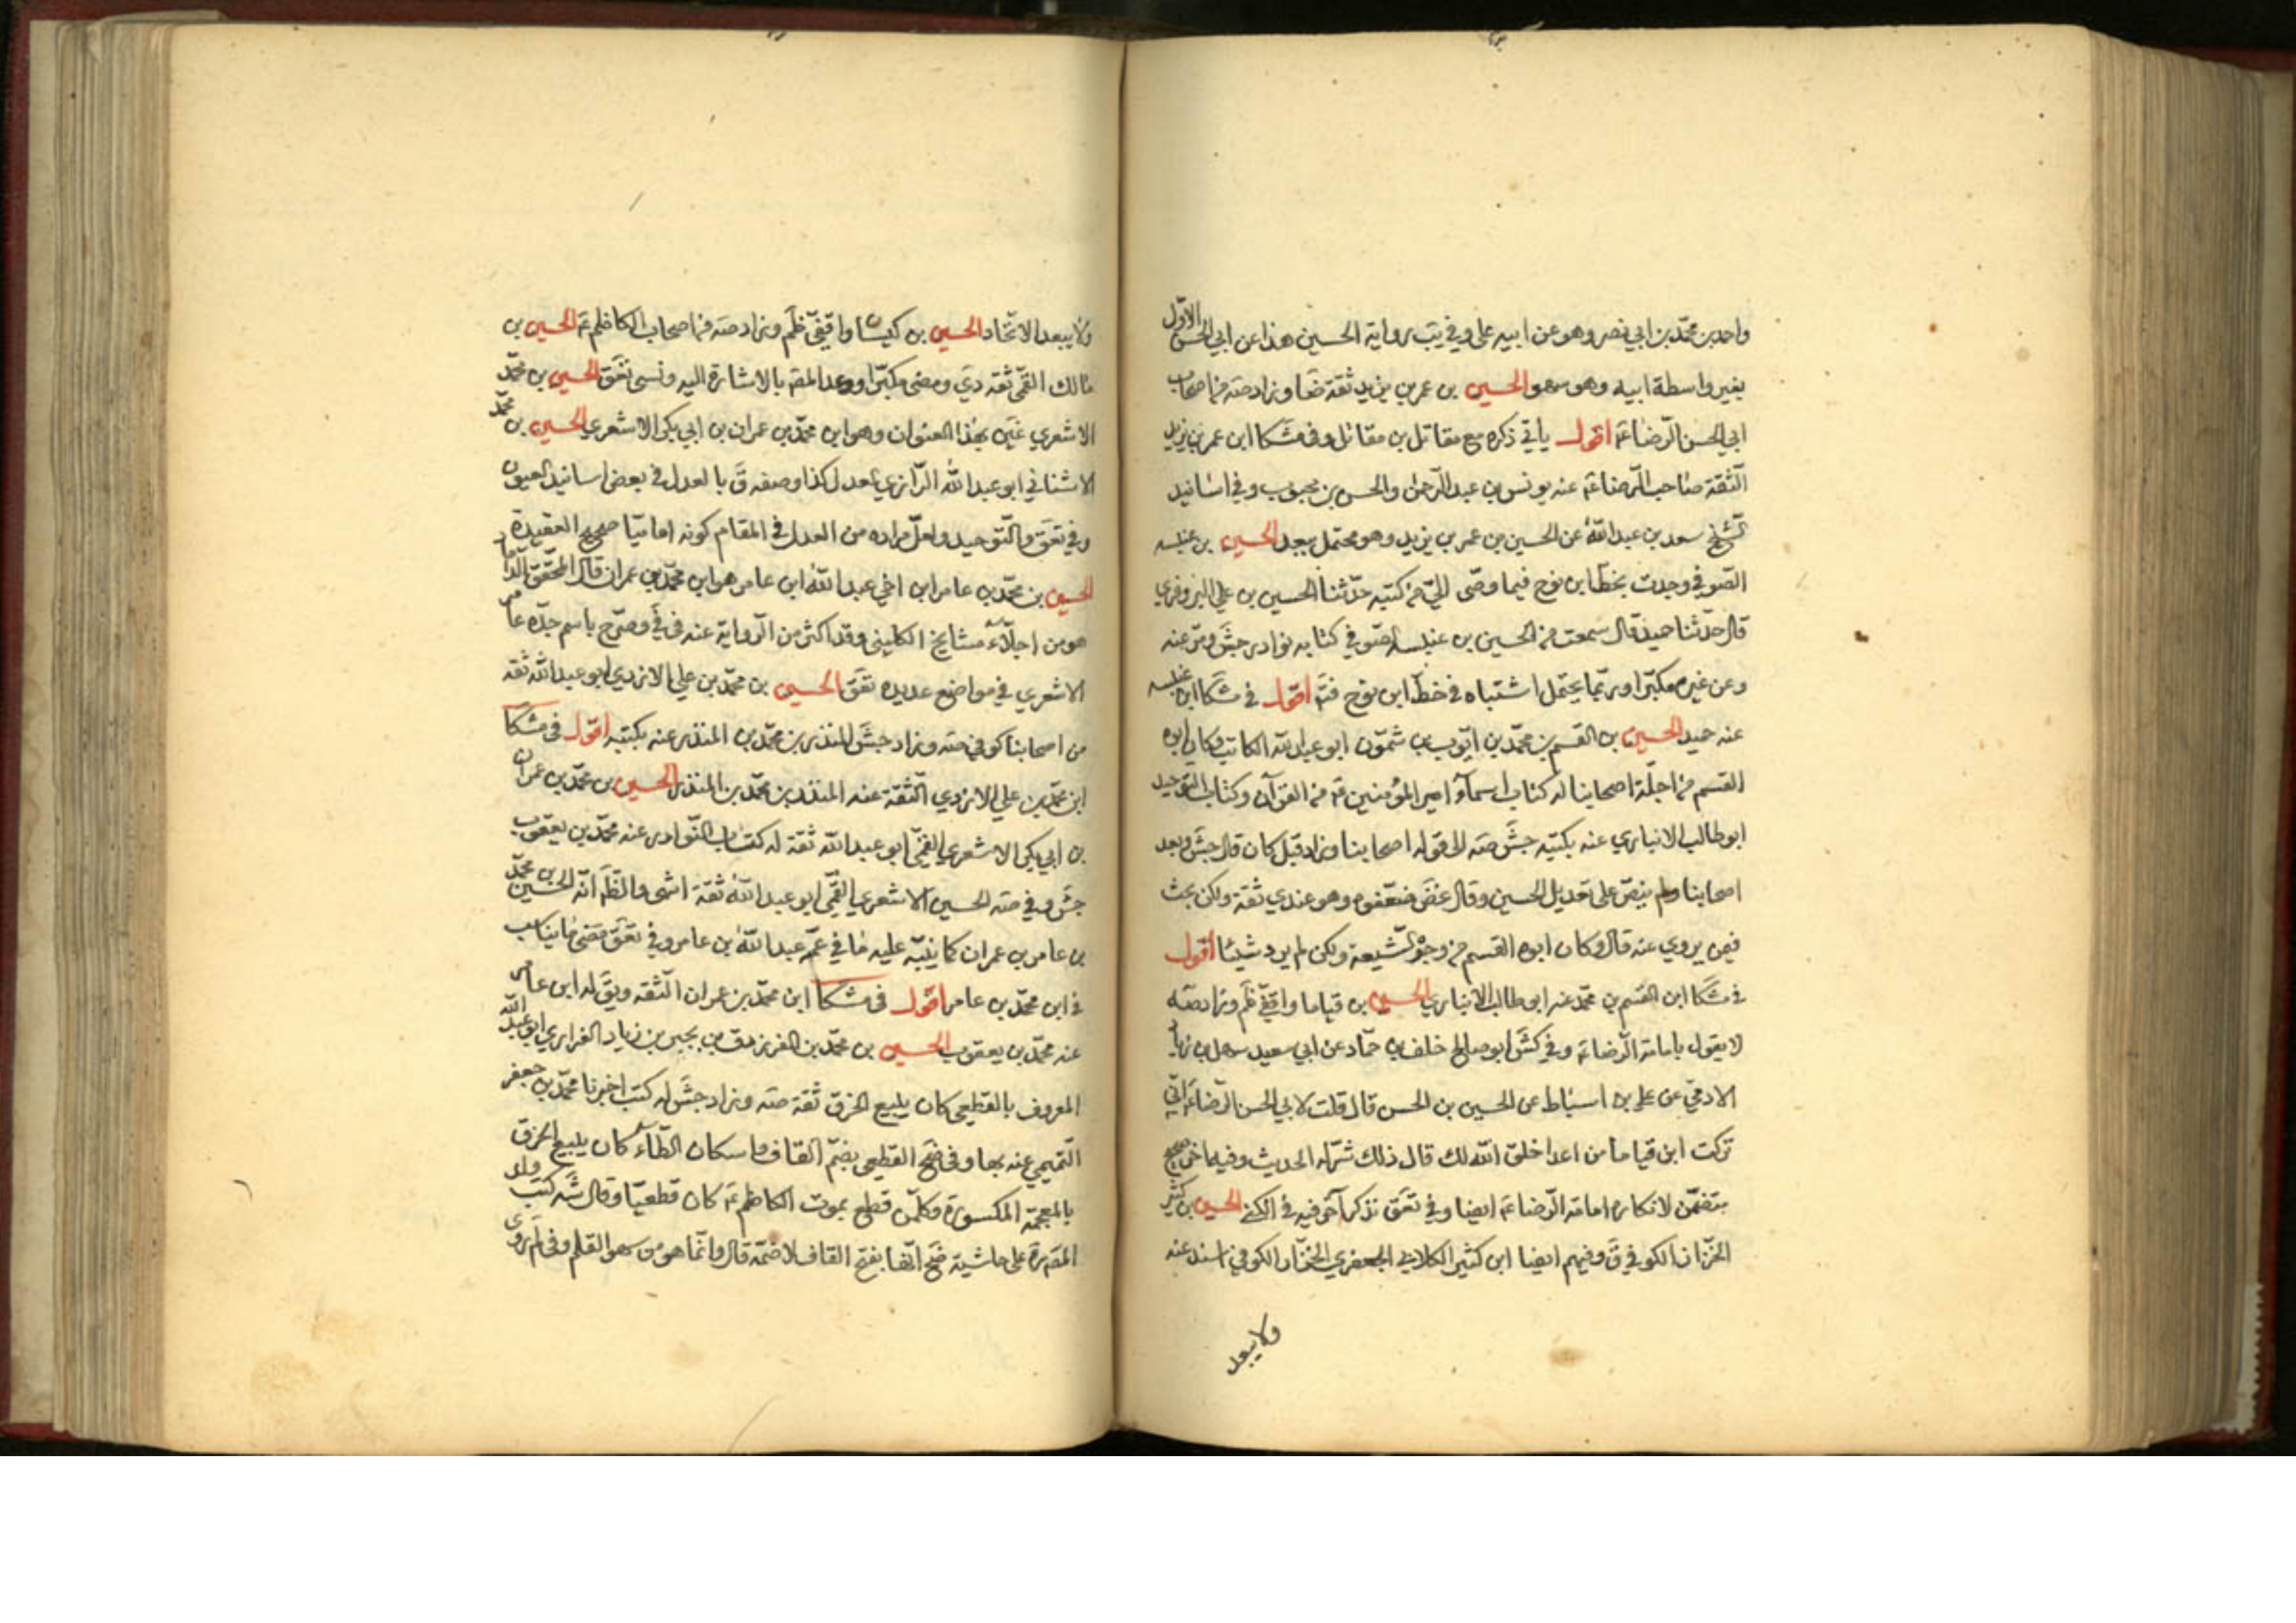 واحمد بن محمّد بن ابي نصر وهو عن ابيه على وفي يب رواية الحسين هذا عن ابي الحسن الاوّل
بغير واسطة ابيه وهو سهو الحسين بن عمر بن يزيد ثقة ضا وزاد صه من اصحاب
ابي الحسن الرّضا ع اقول يأتي ذكره مع مقاتل بن مقاتل وفي مشكا ابن عمر بن يزيد
الثّقة صاحب الرّضا ع عنه يونس بن عبد الرّحمن والحسن بن محبوب وفي اسانيد
الشّيخ سعد بن عبد اللّه عن الحسين بن عمر بن يزيد وهو محتمل بعد الحسين بن عنبسه
الصّوفي وجدت بخطّ ابن نوح فيما وصّى اليّ من كتبه حدّثنا الحسين بن علي البزوفري
قال حدّثنا حميد قال سمعت من الحسين بن عنبسه الصّوفي كتابه نوادر جش ومرّ عنه
وعن غيره مكبّرا وربّما يحتمل اشتباه في خطّ ابن نوح فته اقول في مشكا ابن عنبسه
عنه حميد الحسين بن القسم بن محمّد بن ايّوب بن شمّون ابو عبد اللّه الكاتب وكان ابوه
القسم من اجلّة اصحابنا له كتاب اسمآء امير المؤمنين ع من القرآن وكتاب التوحيد
ابو طالب الانباري عنه بكتبه جش صه الى قوله اصحابنا وزاد قبل كان قال جش وبعد
اصحابنا ولم ينصّ على تعديل الحسين وقال غض ضعّفوه وهو عندي ثقة ولكن بحث
فيمن يروي عنه قال وكان ابوه القسم من وجوه الشّيعة ولكن لم يرو شيئا اقول
في مشكا ابن القسم بن محمّد عنه ابو طالب الانباري الحسين بن قياما واقفيّ ظم وزاد صه
لا يقول بامامة الرّضا ع وفي كش ابو صالح خلف بن حمّاد عن ابي سعيد سهل بن زياد
الادمي عن علي بن اسباط عن الحسين بن الحسن قال قلت لابي الحسن الرّضا ع انّي
تركت ابن قياما من اعدا خلق اللّه لك قال ذلك شرّ له الحديث وفيه اخر صحيح
يتضمّن لانكاره امامة الرّضا ع ايضا وفي تعق نذكر آخر فيه في الكنى الحسين بن كثير
الخزّاز الكوفي ق وفيهم ايضا ابن كثير الكلابي الجعفري الخزّاز الكوفي اسند عنه
ولا يبعد
ولا يبعد الاتّحاد الحسين بن كيسان واقفيّ ظم وزاد صه من اصحاب الكاظم ع الحسين بن
مالك القمّي ثقة دي ومضى مكبّرا ووعد المصّ بالاشارة اليه ونسى تعق الحسين بن محمّد
الاشعري غين بهذا العنوان وهو ابن محمّد بن عمران بن ابي بكر الاشعري الحسين بن محمّد
الاشناني ابو عبد اللّه الرّازي العدل كذا وصفه ق بالعدل في بعض اسانيد العيون
وفي تعق والتّوحيد ولعلّ مراده من العدل في المقام كونه اماميّا صحيح العقيدة
الحسين بن محمّد بن عامر ابن اخي عبد اللّه ابن عامر هو ابن محمّد بن عمران قال المحقّق الدّاماد
هو من اجلّاء مشايخ الكليني وقد اكثر من الرّواية عنه في في وصرّح باسم جدّه عامر
الاشعري في مواضع عديده تعق الحسين بن محمّد بن علي الازدي ابو عبد اللّه ثقة
من اصحابنا كوفي صه وزاد جش المنذر بن محمّد بن المنذر عنه بكتبه اقول في مشكا
ابن محمّد بن علي الازدي الثّقة عنه المنذر بن محمّد بن المنذر الحسين بن محمّد بن عمران
بن ابي بكر الاشعري القمّي ابو عبد اللّه ثقة له كتاب النّوادر عنه محمّد بن يعقوب
جش وفي صه الحسين الاشعري القمّي ابو عبد اللّه ثقة انتهى والظّ انّه الحسين بن محمّد
بن عامر بن عمران كما ينبّه عليه ما في عمّه عبد اللّه بن عامر وفي تعق مضى ما يناسب
في ابن محمّد بن عامر اقول في مشكا ابن محمّد بن عمران الثّقة ويق له ابن عامر
عنه محمّد بن يعقوب الحسين بن محمّد بن الفرزدق بن بجير بن زياد الفزاري ابو عبد اللّه
المعروف بالقطعي كان يبيع الخرق ثقة صه وزاد جش له كتب اخبرنا محمّد بن جعفر
التّميمي عنه بها وفي ضح القطعي بضمّ القاف واسكان الطّاء كان يبيع الخرق
بالمعجمة المكسورة وكلّ من قطع بموت الكاظم ع كان قطعيّا وقال شه كتب ولد
المصّ ره على حاشية ضح انّها بفتح القاف لا ضمّه قال وانّما هو من سهو القلم وفي لم روى